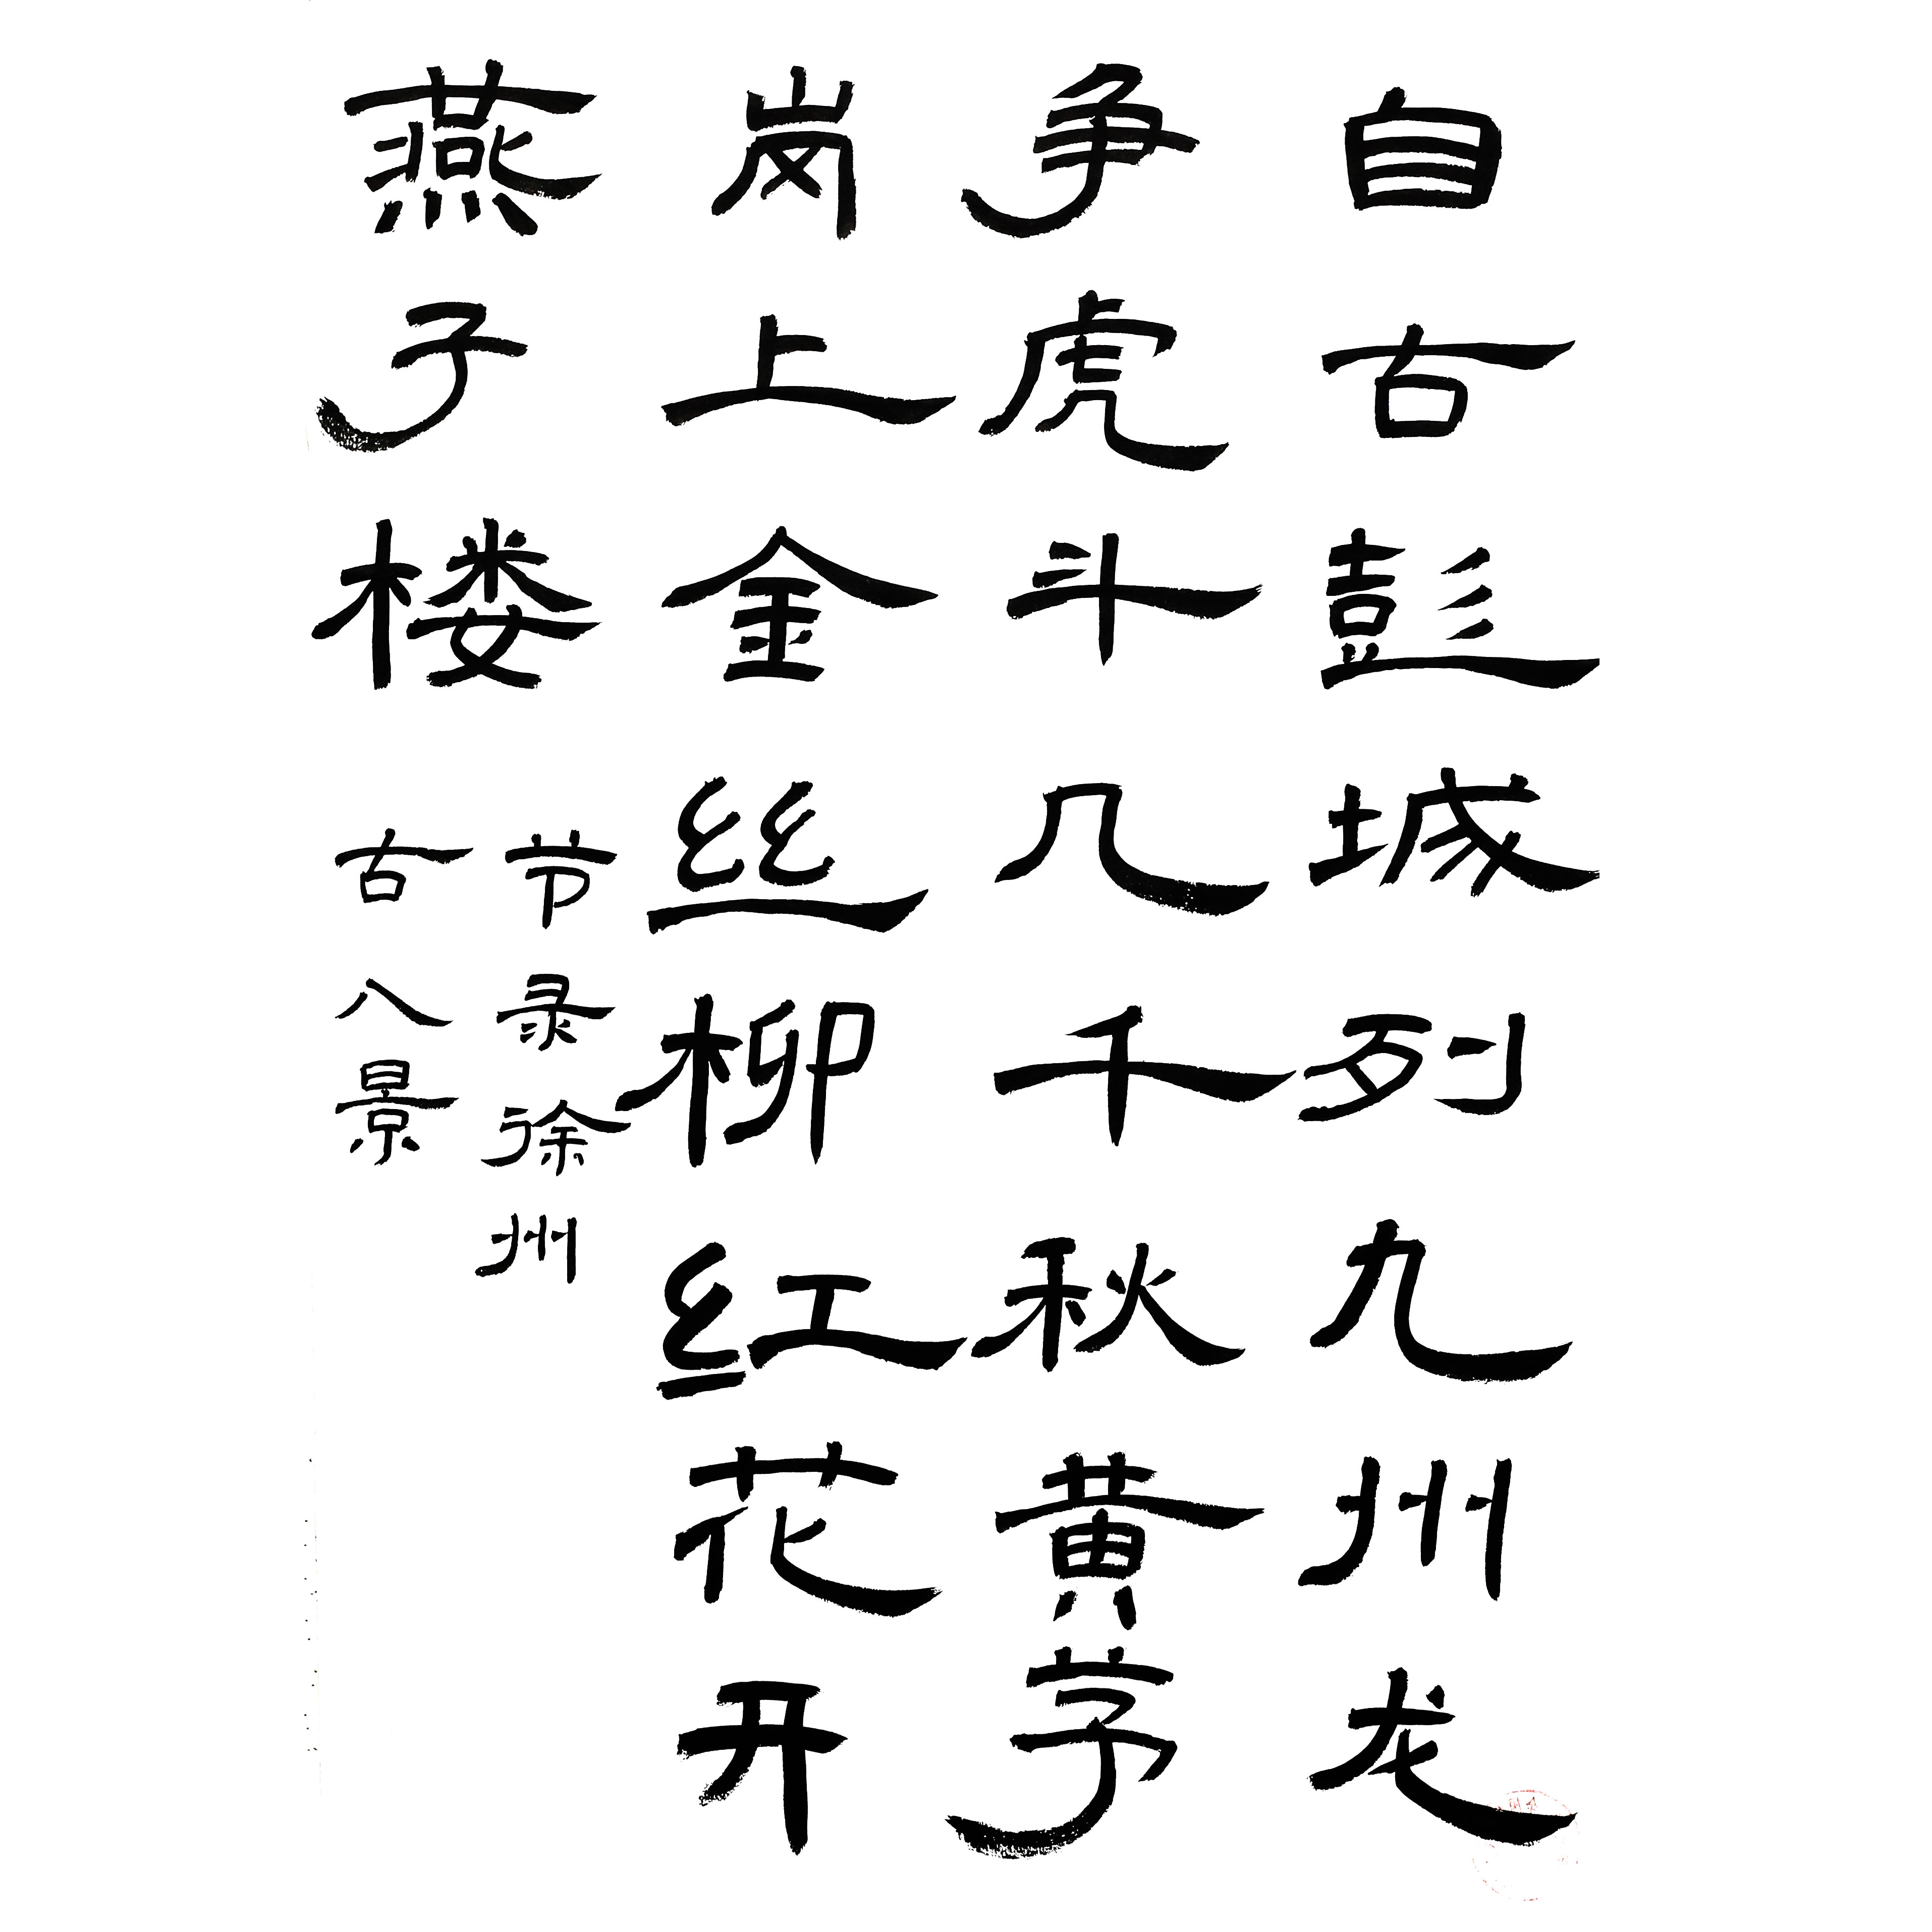 自古彭城列九州龙
争虎斗几千秋黄茅
岗上金丝柳红花开
燕子楼
节录徐州
古八景